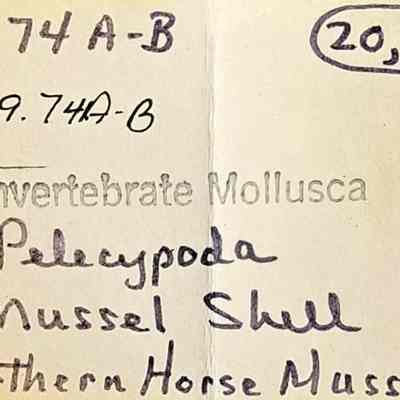 74 A-B 20,
9.74A-B
nvertebrate Mollusca
Pelecypoda
Mussel Shell
thern Horse Muss